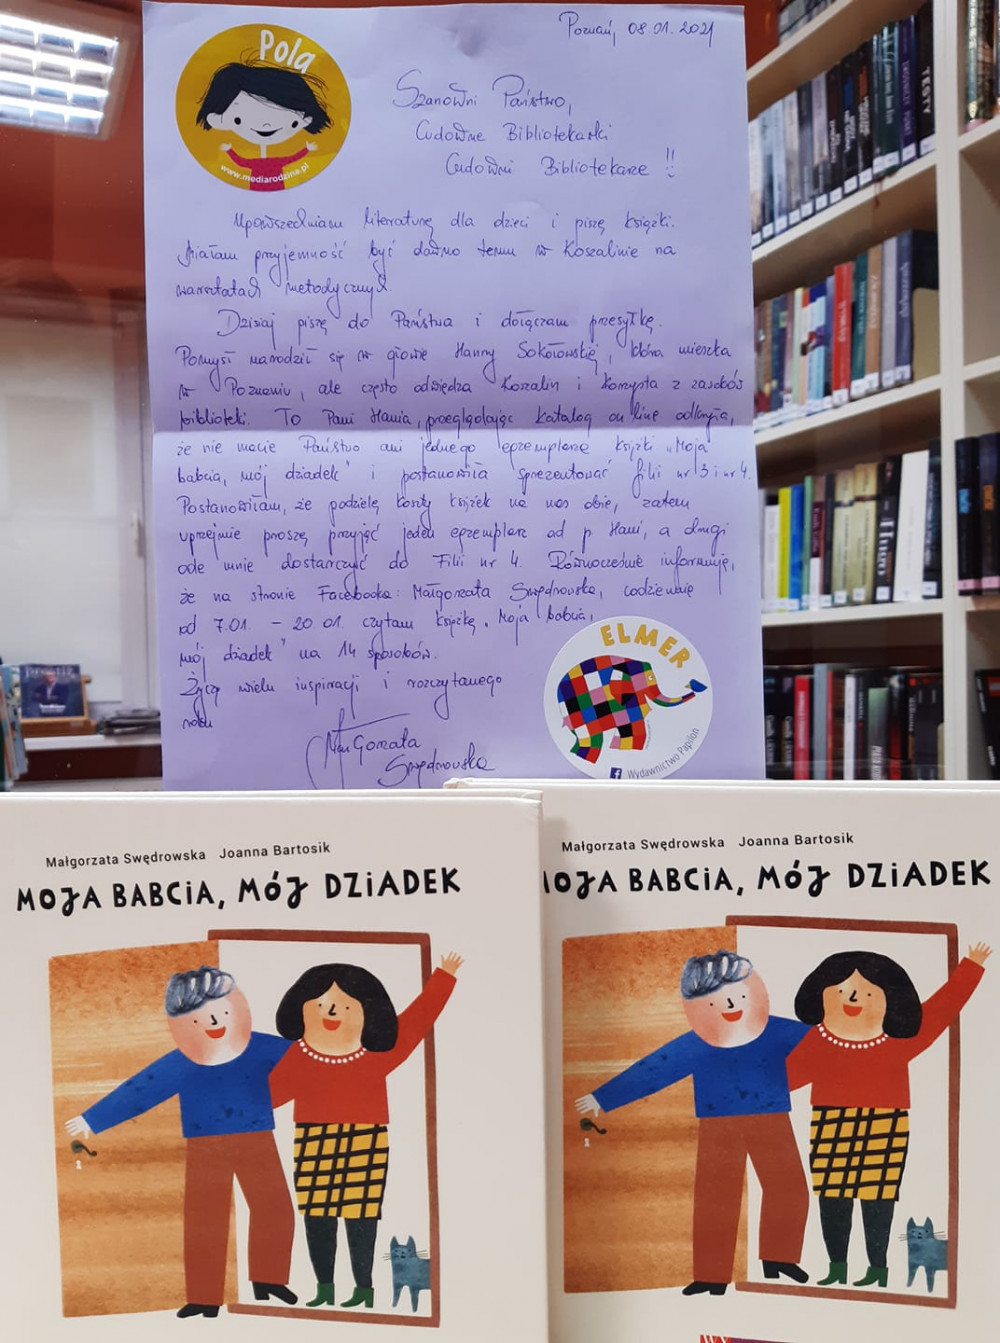 Pola
www.mediarodzina.pl
Poznań, 08.01.2021
Szanowni Państwo,
Cudowne Bibliotekarki
Cudowni Bibliotekarze !!
Upowszechniam literaturę dla dzieci i piszę książki.
Miałam przyjemność być dawno temu w Koszalinie na
warsztatach metodycznych.
Dzisiaj piszę do Państwa i dołączam przesyłkę.
Pomysł narodził się w głowie Hanny Sokołowskiej, która mieszka
w Poznaniu, ale często odwiedza Koszalin i korzysta z zasobów
biblioteki. To Pani Hania, przeglądając katalog on line odkryła,
że nie macie Państwo ani jednego egzemplarza książki "Moja
babcia, mój dziadek" i postanowiła sprezentować filii nr 3 i nr 4.
Postanowiłam, że podzielę koszty książek na nas obie, zatem
uprzejmie proszę przyjąć jeden egzemplarz od p. Hani, a drugi
ode mnie dostarczyć do Filii nr 4. Równocześnie informuję,
że na stronie Facebooka: Małgorzata Swędrowska, codziennie
od 7.01. – 20.01. czytam książkę "Moja babcia,
mój dziadek" na 14 sposobów.
Życzę wielu inspiracji i rozczytanego
roku
Małgorzata
Swędrowska
ELMER
Wydawnictwo Papilon
TESTY
Małgorzata Swędrowska Joanna Bartosik
MOJA BABCIA, MÓJ DZIADEK
Małgorzata Swędrowska Joanna Bartosik
MOJA BABCIA, MÓJ DZIADEK